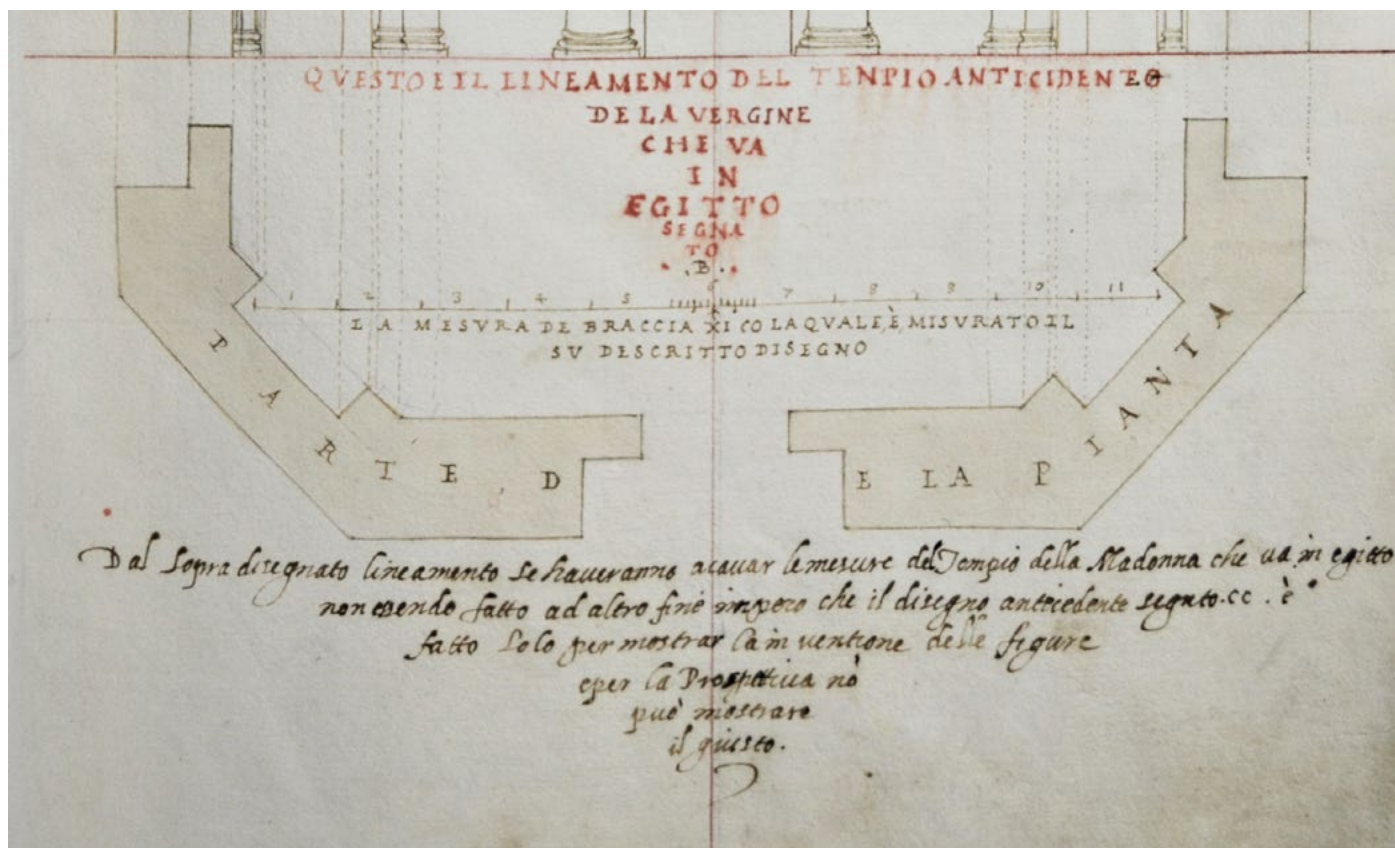 QVESTO E IL LINEAMENTO DEL TENPIO ANTICIDENTO
DE LA VERGINE
CHE VA
IN
EGITTO
SEGNA
TO
.B.
1 2 3 4 5 6 7 8 8 10 11
LA MESVRA DE BRACCIA XI CO LA QVALE, È, MISVRATO IL
SV DESCRITTO DISEGNO
PARTE D E LA PIANTA
Dal sopra disegnato lineamento se haueranno acauar le mesure del Tempio della Madonna che va in egitto
non esendo fatto ad altro fine impero che il disegno antecedente segnto .cc. è
fatto solo per mostrar la inuentione delle figure
e per la Prospettiua nò
può mostrare
il giusto.